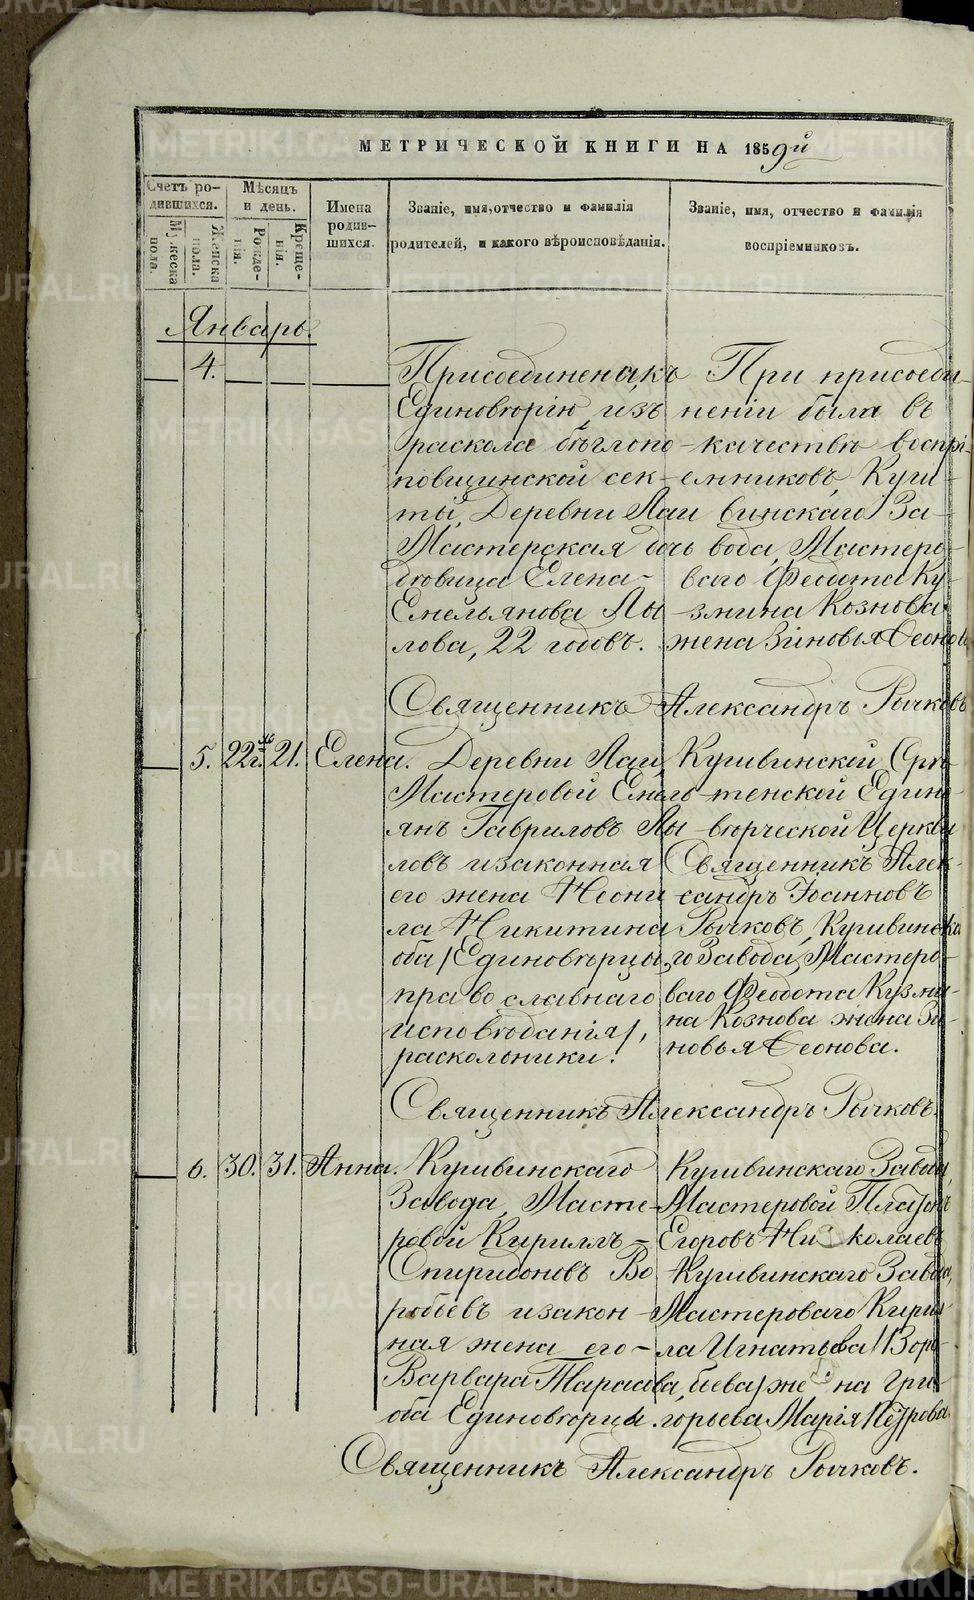 МЕТРИЧЕСКОЙ КНИГИ НА 1859й
Счетъ родившихся.
Мужеска пола.
Женска пола.
Мѣсяцъ и день.
Рожденія.
Крещенія.
Имена родившихся.
Званіе, имя, отчество и фамилія родителей, и какого вѣроисповѣданія.
Званіе, имя, отчество и фамилія воспріемниковъ.
Январь.
4.
Присоединена къ
Единовѣрію, изъ
раскола бѣглопо-
повщинской сек-
ты, Деревни Лаи
Мастерская дочь
дѣвица Елена
Емельянова Лы
лова, 22 годовъ.
При присоеди-
неніи была въ
качествѣ воспрі-
емниковъ, Куши-
винскаго За-
вода, Мастеро-
ваго Феодота Ку-
змина Кознова
жена Зиновья Леонова
Священникъ Александръ Рычковъ
5. 22го 21. Елена.
Деревни Лаи,
Мастеровой Емель
янъ Гавриловъ Лы
ловъ и законная
его жена Неони
ла Никитина
оба /Единовѣрцы,
православнаго
исповѣданія/,
раскольники.
Кушвинской Срѣ-
тенской Едино-
вѣрческой Церкви
Священникъ Алек-
сандръ Іоанновъ
Рычковъ, Кушвинска
го Завода, Мастеро-
ваго Феодота Кузми-
на Кознова жена Зи-
новья Леонова.
Священникъ Александръ Рычковъ.
6. 30. 31. Анна.
Кушвинскаго
Завода, Масте-
ровой Кириллъ
Спиридоновъ Во
робьевъ и закон-
ная жена его
Варвара Тарасова,
оба Единовѣрцы.
Кушвинскаго Завода,
Мастеровой Платонъ
Егоровъ Николаевъ
Кушвинскаго Завода,
Мастероваго Кирил-
ла Игнатьева /Воро-
бьева/ жена Гри-
горьева Марія Петрова
Священникъ Александръ Рычковъ.
METRIKI.GASO-URAL.RU